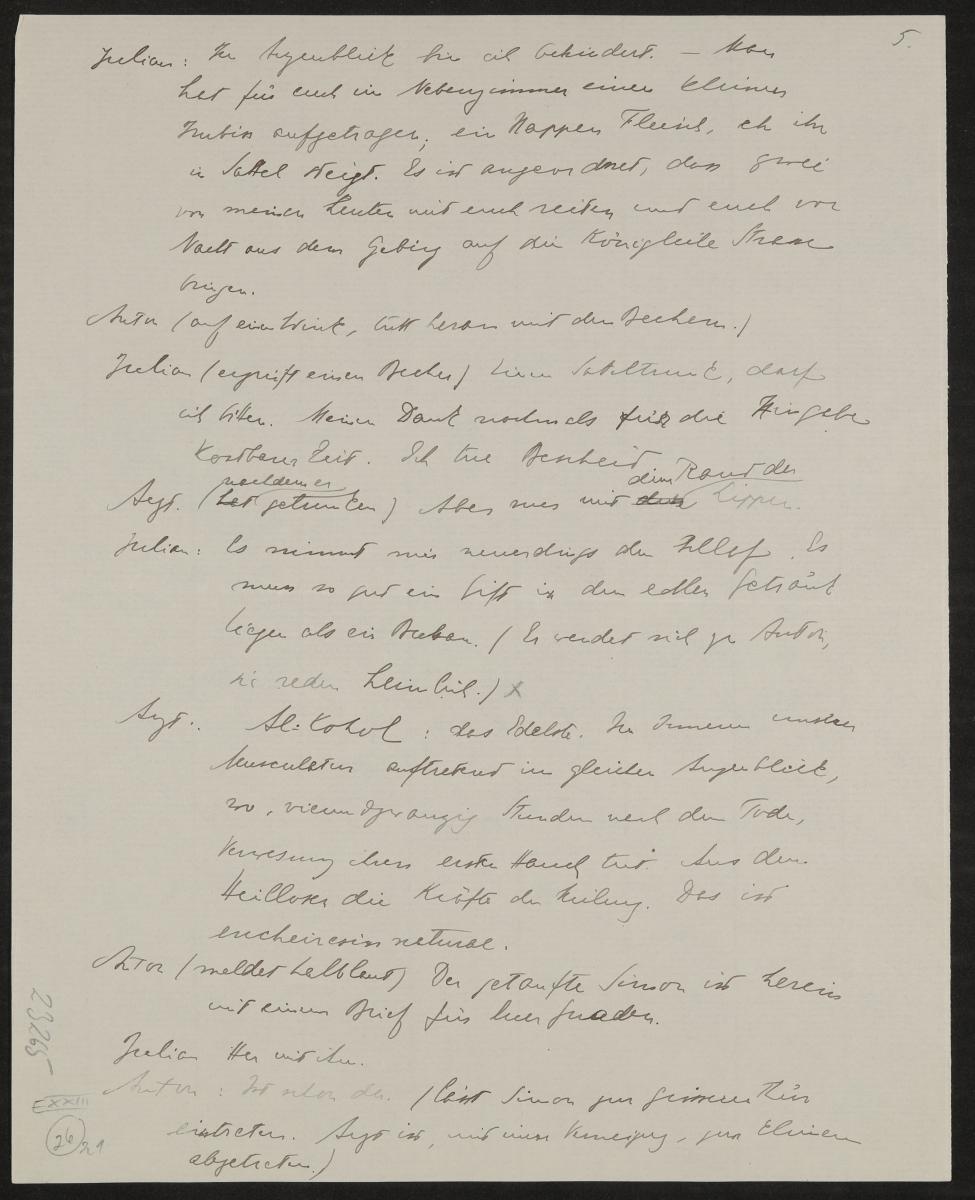 5.
Julian: Im Augenblick bin ich behindert. – Man
hat für euch im Nebenzimmer einen kleinen
Imbiss aufgetragen, ein Happen Fleisch, eh ihr
in Sattel steigt. Es ist angeordnet, dass zwei
von meinen Leuten mit euch reiten und euch vor
Nacht aus dem Gebirg auf die Königliche Strasse
bringen.
Anton (auf einen Wink, tritt heran mit den Bechern.)
Julian (ergreift einen Becher) Einen Satteltrunk, darf
ich bitten. Meinen Dank nochmals für die Hingabe
Kostbarer Zeit. Ich tue Bescheid
nachdem er dem Rand der
Arzt. (hat getrunken) Aber nur mit den Lippen.
Julian: Es nimmt mir neuerdings den Schlaf. Es
muss so gut ein Gift in dem edlen Getränk
liegen als ein Balsam. (Er wendet sich zu Anton,
sie reden heimlich.) x
Arzt: Al-Kohol: das Edelste. Im Inneren unserer
Musculatur auftretend im gleichen Augenblick,
wo, vierundzwanzig Stunden nach dem Tode,
Verwesung ihren ersten Hauch tut. Aus dem
Heillosen die Kräfte der Heilung. Das ist
encheiresin naturae.
Anton (meldet halblaut) Der getaufte Simon ist herein
mit einem Brief für Euer Gnaden.
Julian Her mit ihm.
Anton: Ist schon da. (lässt Simon zur Thür
eintreten. Arzt ist, mit einer Verneigung, zur
abgetreten.)
23265
EXXIII
26 21